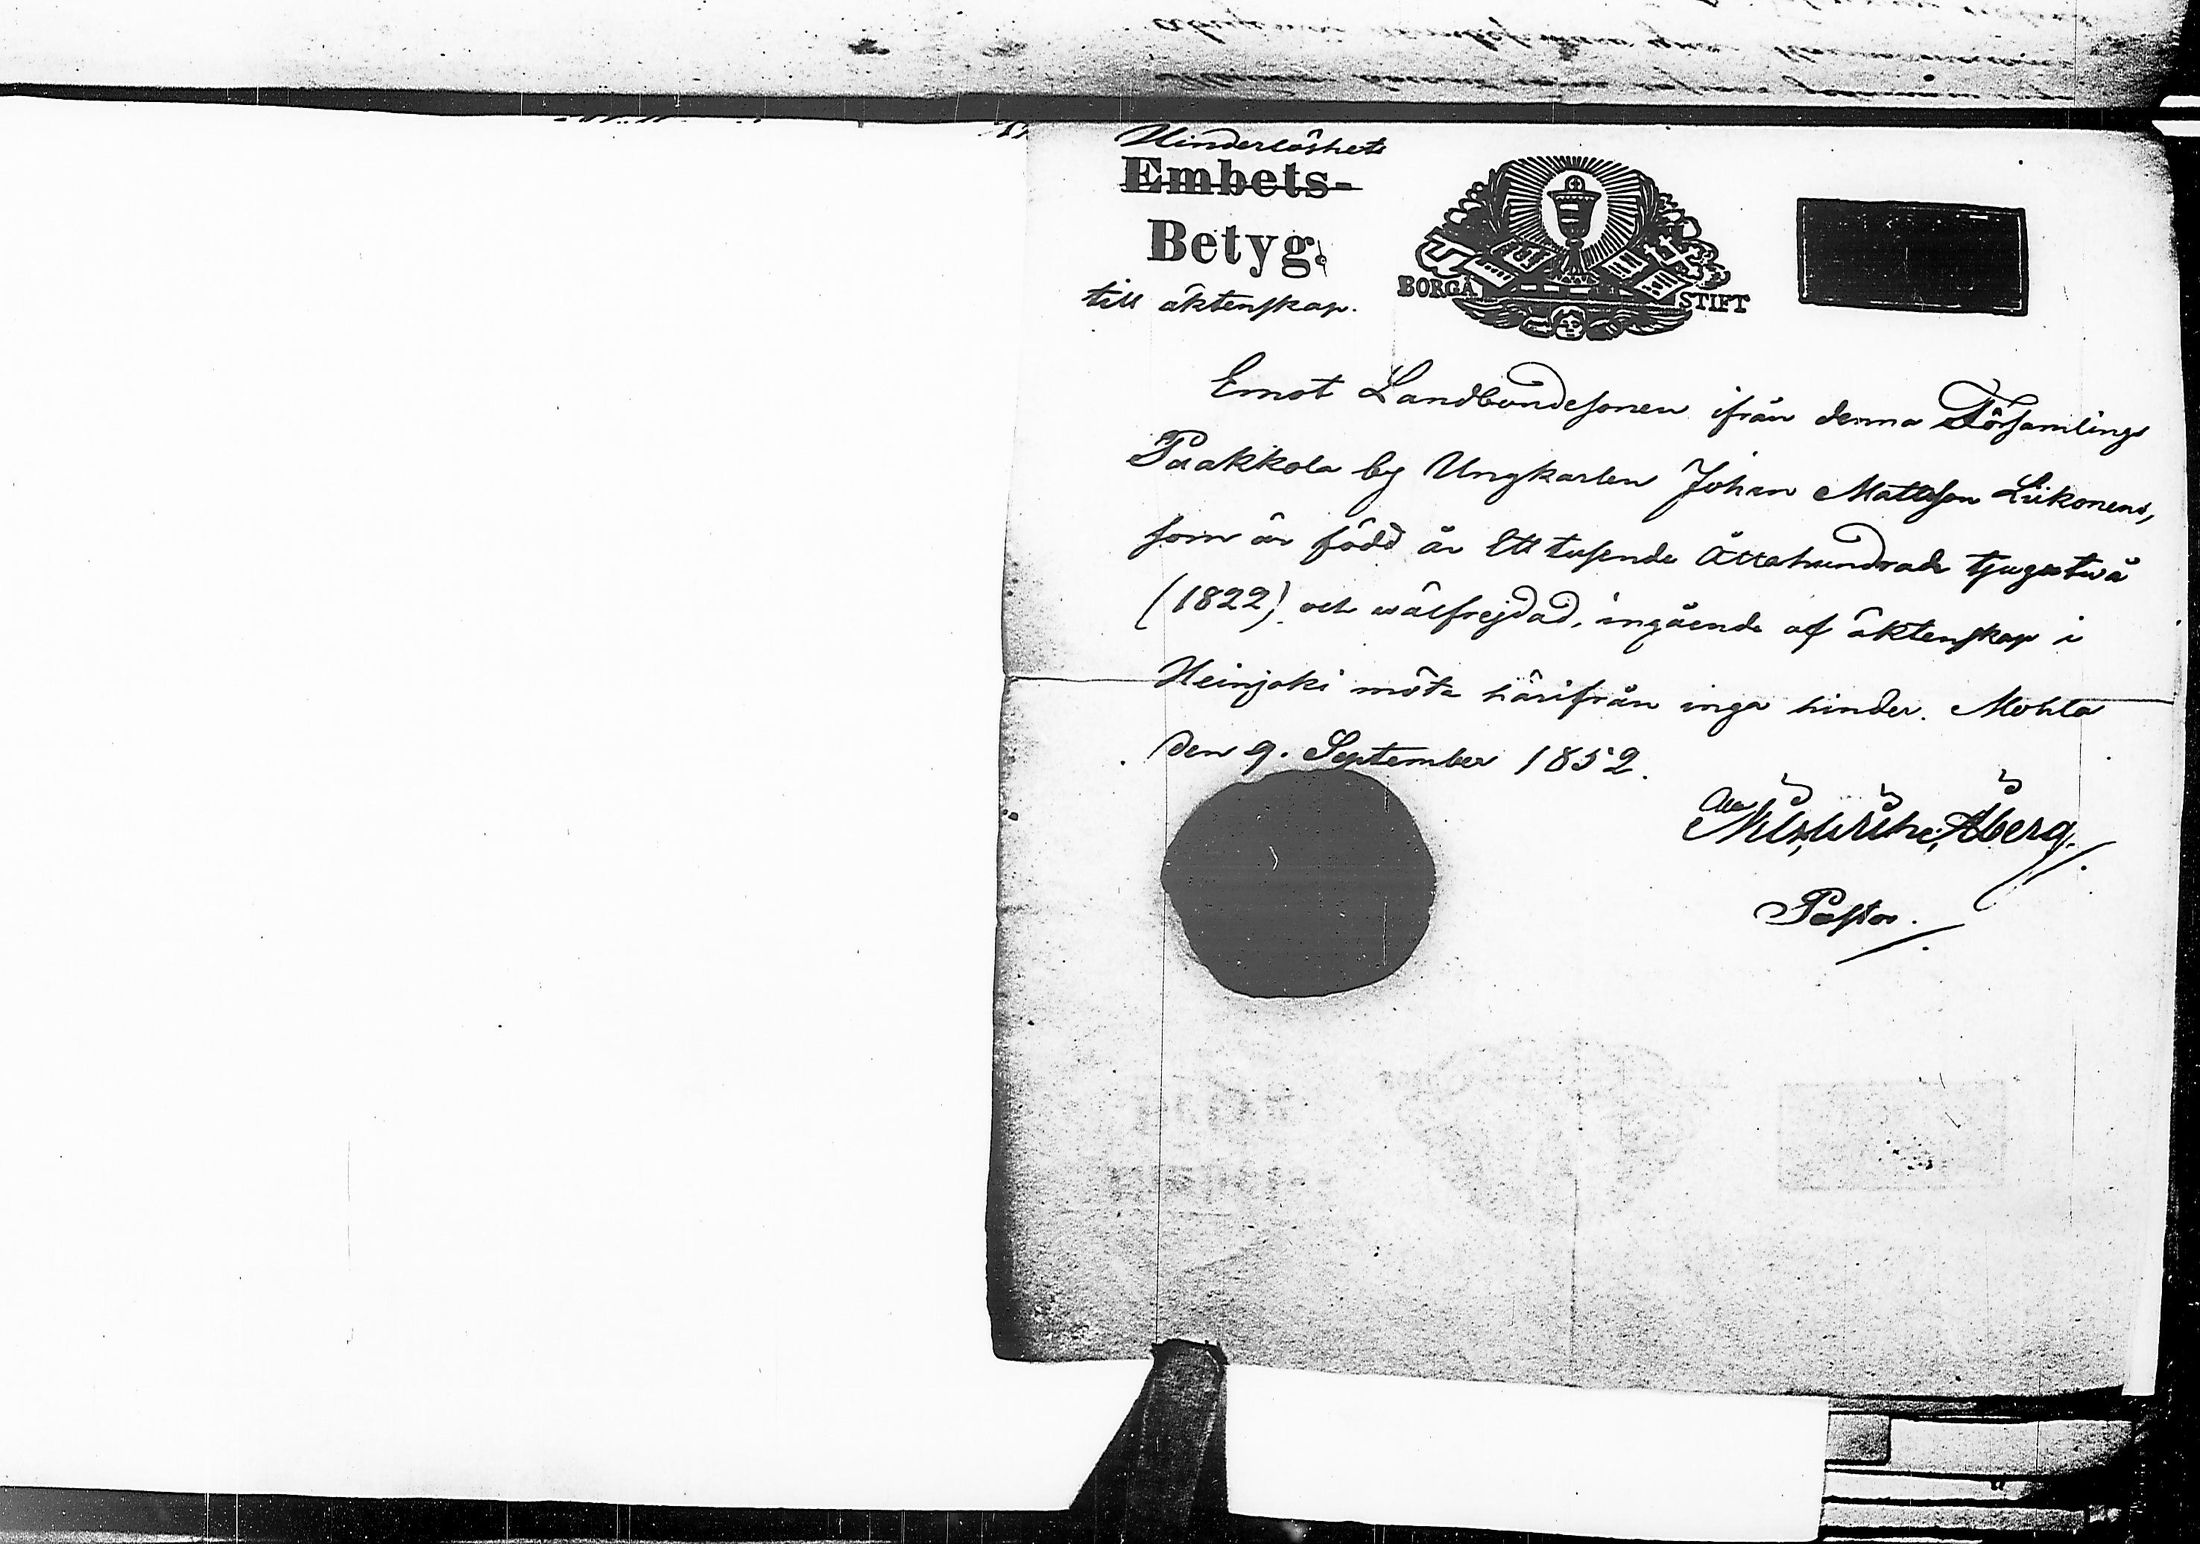 Hinderlöshets
Embets-
Betyg.
till äktenskap.
BORGÅ STIFT
Emot Landbondesonen ifrån denna Församlings
Paakkola by Ungkarlen Johan Mattsson Liikonens,
som är född år Ett tusende Åttahundrade tjugutvå
(1822) och wälfrejdad, ingående af äktenskap i
Heinjoki möta härifrån inga hinder. Mohla
den 9. September 1852.
Åberg.
Pastor.